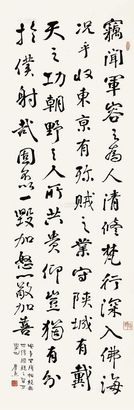 竊聞軍容之為人清修梵行深入佛海
況乎收東京有殄賊之業守陝城有戴
天之功朝野之人所共貴仰豈獨有分
於僕射哉固不以一毀加怒一敬加喜